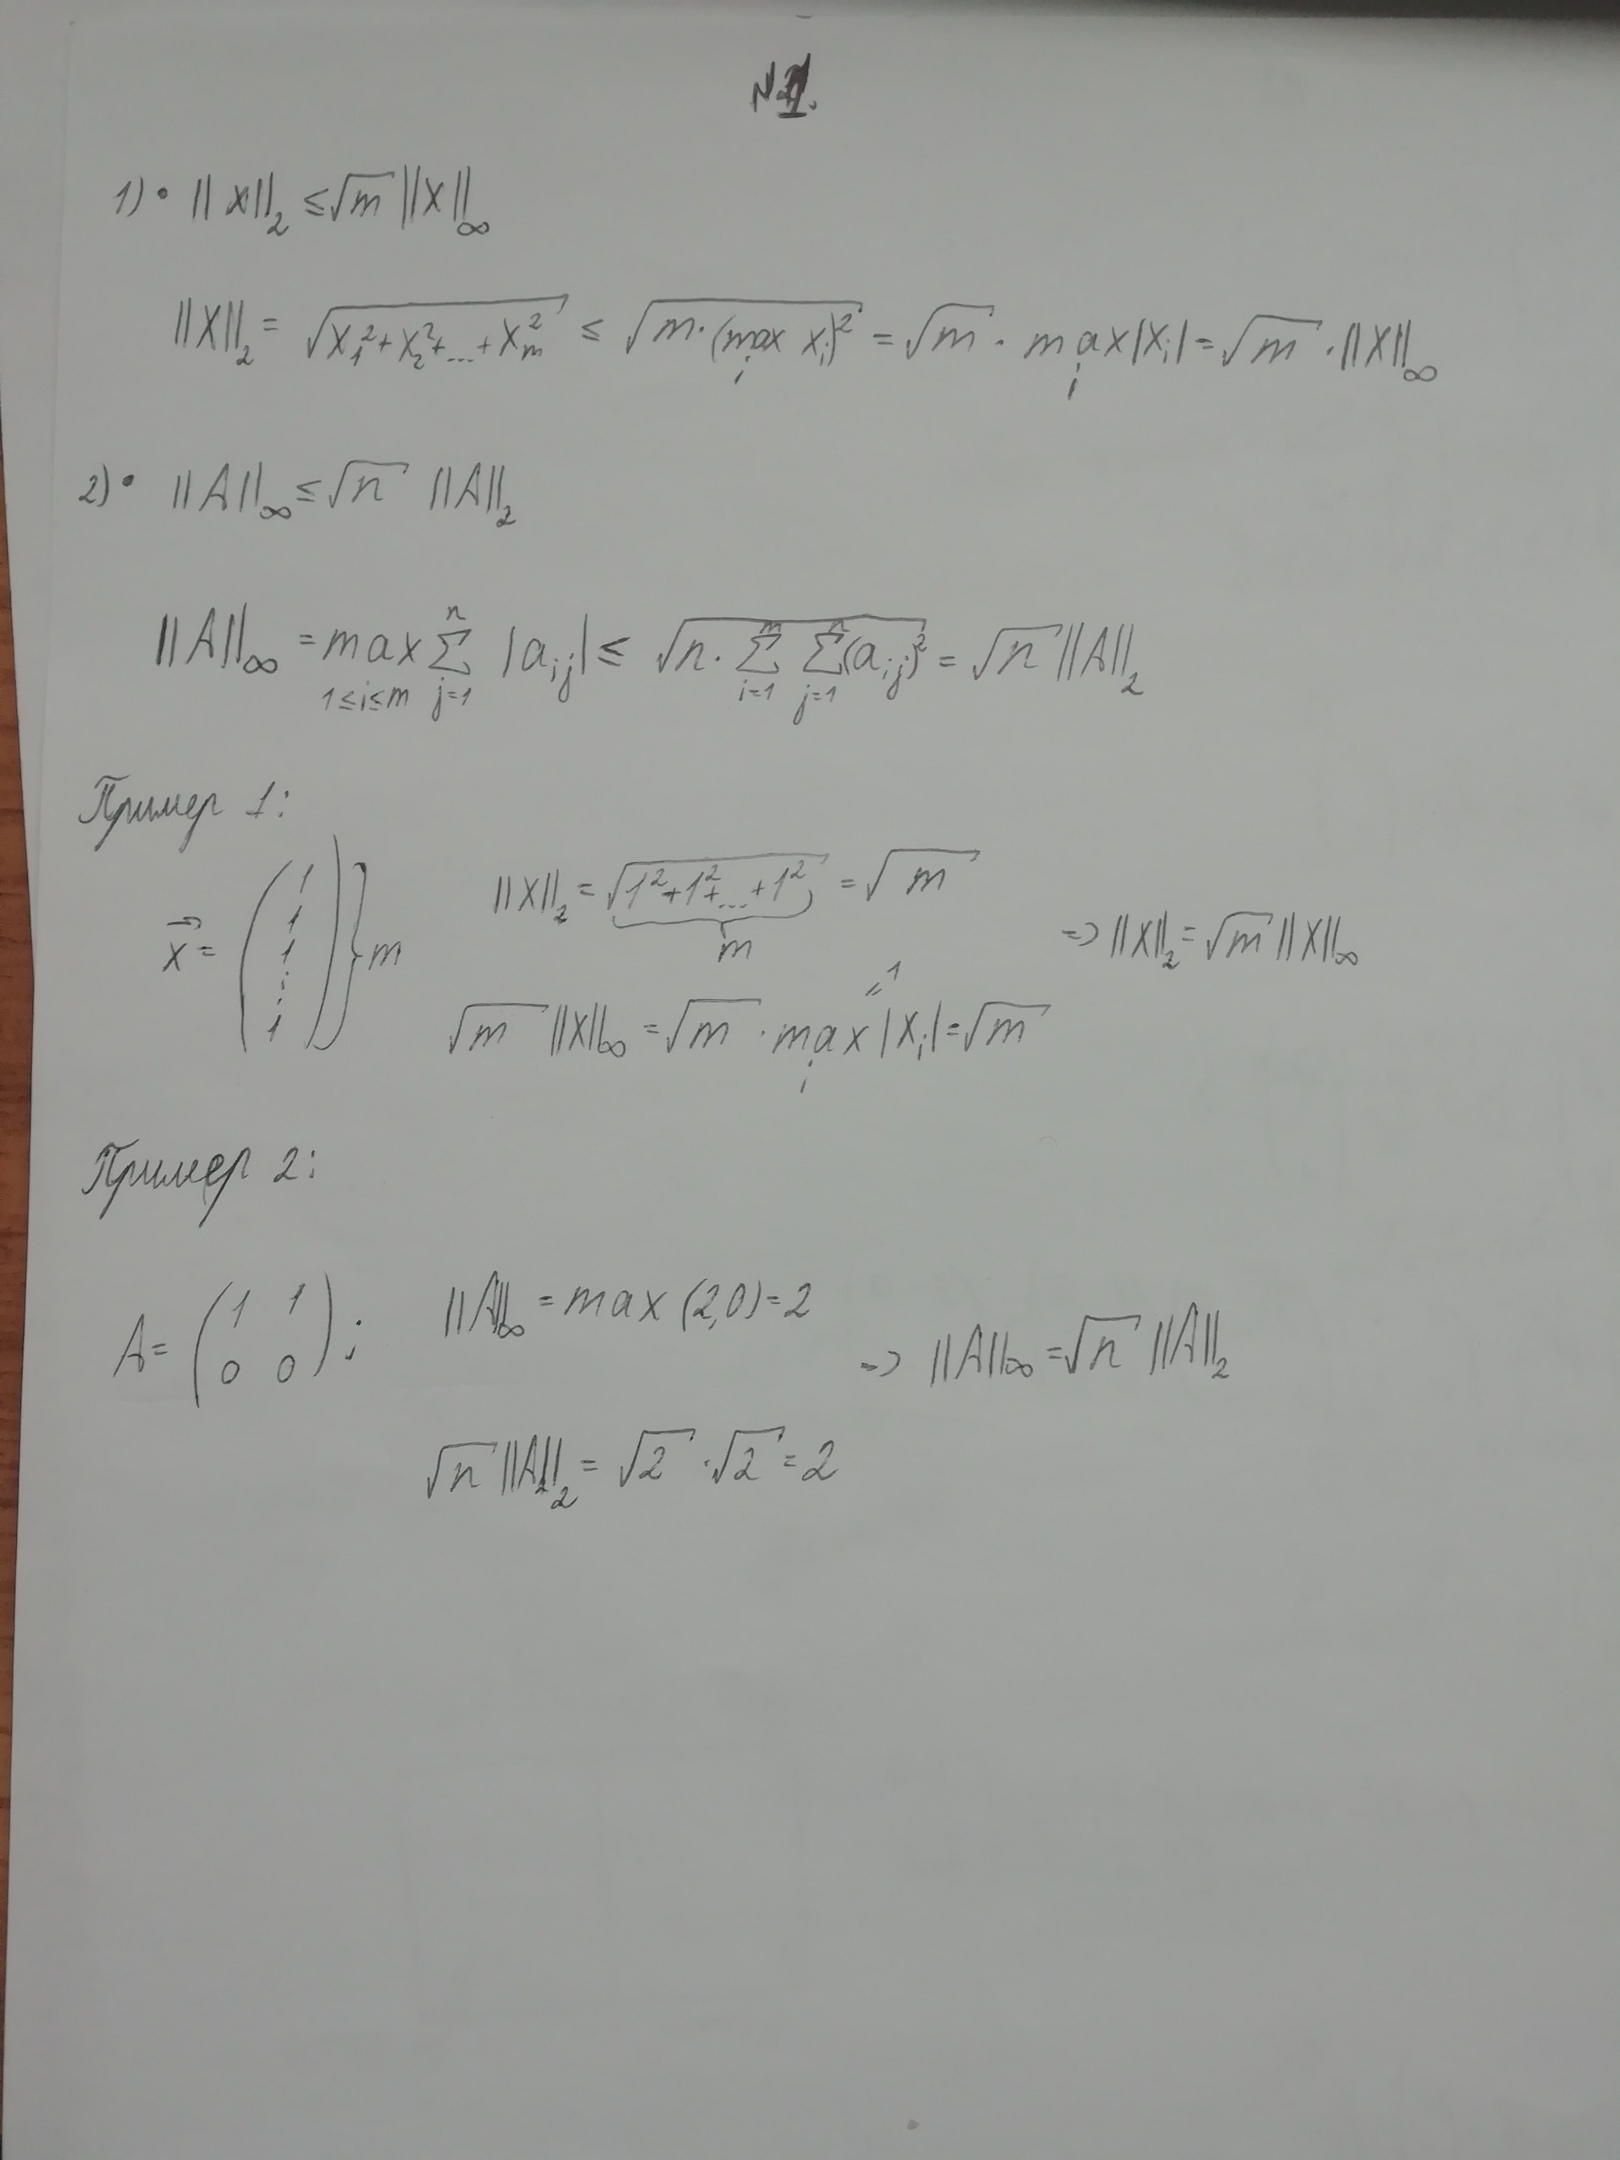 №1.
1) • ||x||₂ ≤ √m ||x||∞
||x||₂ = √(x₁²+x₂²+...+xₘ²) ≤ √(m·(max_i x_i)²) = √m · max_i |x_i| = √m · ||x||∞
2) • ||A||∞ ≤ √n ||A||₂
||A||∞ = max_{1≤i≤m} ∑_{j=1}^{n} |a_{ij}| ≤ √(n·∑_{i=1}^{m} ∑_{j=1}^{n} (a_{ij})²) = √n ||A||₂
Пример 1:
x⃗ = (1 1 1 ⋮ 1) } m
||x||₂ = √(1²+1²+...+1²) = √m
m
⇒ ||x||₂ = √m ||x||∞
√m ||x||∞ = √m · max_i |x_i| = √m
= 1
Пример 2:
A = (1 1
0 0);
||A||∞ = max (2,0) = 2
⇒ ||A||∞ = √n ||A||₂
√n ||A||₂ = √2 · √2 = 2